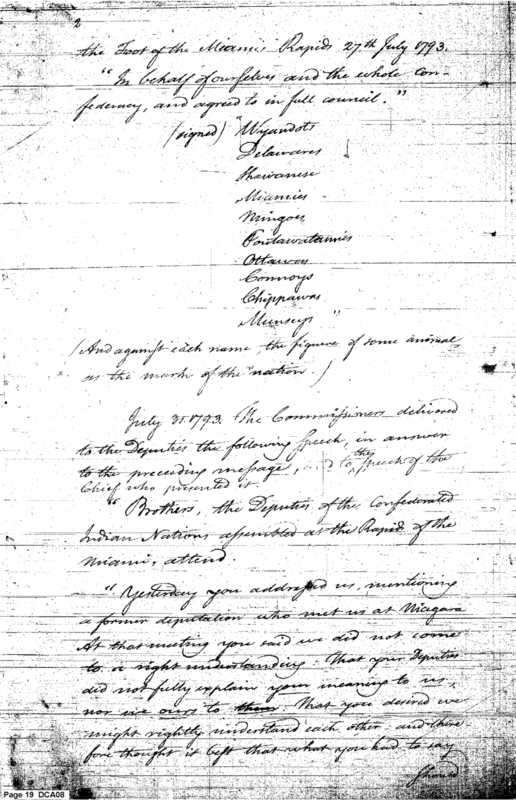 2
the Foot of the Miamis Rapids 27th July 1793.
"In behalf of ourselves and the whole con-
federacy, and agreed to in full council."
(signed) "Wyandots
Delawares
Shawanese
Miamies
Mingoes
Poutawatamies
Ottawas
Connoys
Chippawas
Munseys"
(And against each name, the figure of some animal,
as the mark of the nation.)
July 31. 1793. The Commissioners delivered
to the Deputies the following Speech, in answer
to the preceding message, and to the speech of the
Chief who presented it.
"Brothers, the Deputies of the Confederated
Indian Nations assembled at the Rapids of the
Miami, attend.
"Yesterday you addressed us, mentioning
a former deputation who met us at Niagara
At that meeting you said we did not come
to a right understanding: That your Deputies
did not fully explain your meaning to us,
nor we ours to them: That you desired we
might rightly understand each other, and there
fore thought it best that what you had to say
should
Page 19 DCA08